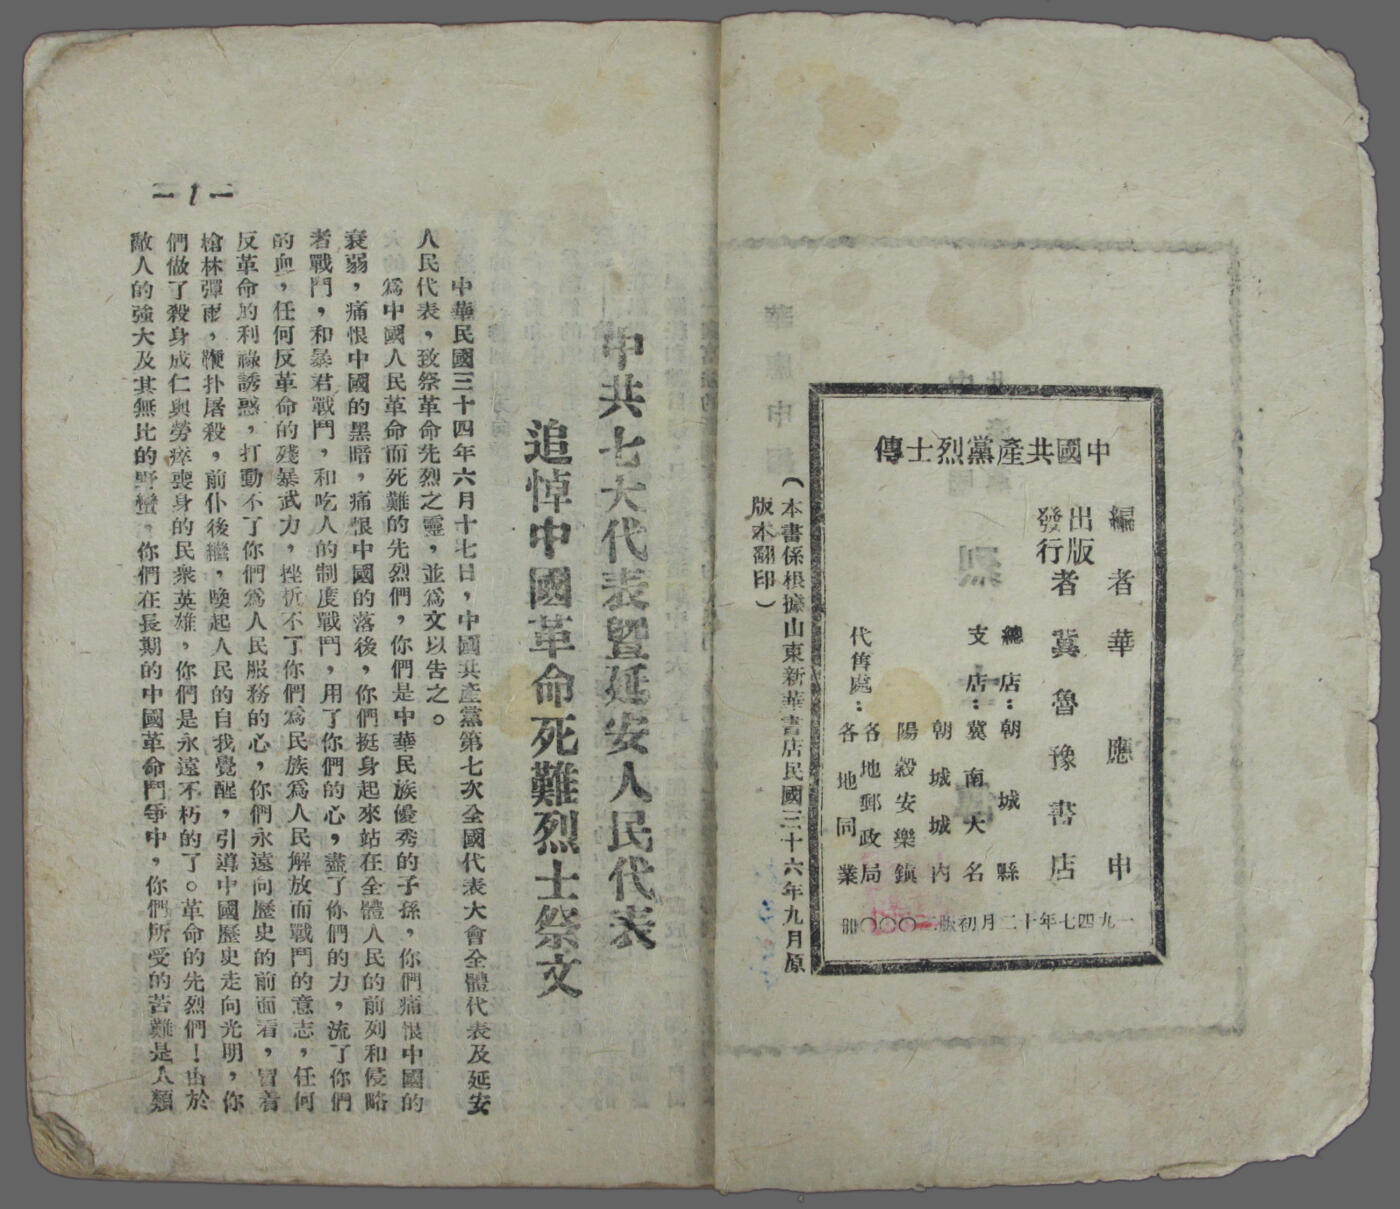 中國共產黨烈士傳
編者 華應申
出版
發行者 冀魯豫書店
總店：朝城縣
支店：冀南大名
朝城城內
陽穀安樂鎮
代售處：各地郵政局
各地同業
一九四七年十二月初版
（本書係根據山東新華書店民國三十六年九月原
版本翻印）
中共七大代表暨延安人民代表
追悼中國革命死難烈士祭文
中華民國三十四年六月十七日，中國共產黨第七次全國代表大會全體代表及延安
人民代表，致祭革命先烈之靈，並爲文以告之。
爲中國人民革命而死難的先烈們，你們是中華民族優秀的子孫，你們痛恨中國的
衰弱，痛恨中國的黑暗，痛恨中國的落後，你們挺身起來站在全體人民的前列和侵略
者戰鬥，和暴君戰鬥，和吃人的制度戰鬥，用了你們的心，盡了你們的力，流了你們
的血，任何反革命的殘暴武力，挫折不了你們爲民族爲人民解放而戰鬥的意志，任何
反革命的利祿誘惑，打動不了你們爲人民服務的心，你們永遠向歷史的前面看，冒着
槍林彈雨，鞭扑屠殺，前仆後繼，喚起人民的自我覺醒，引導中國歷史走向光明，你
們做了殺身成仁與勞瘁喪身的民衆英雄，你們是永遠不朽的了。革命的先烈們！由於
敵人的強大及其無比的野蠻，你們在長期的中國革命鬥爭中，你們所受的苦難是人類
— 1 —